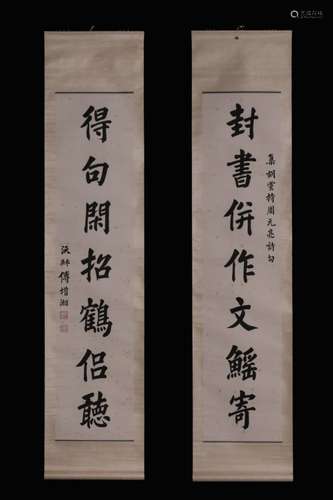 封書併作文鰩寄
集胡雲持周元亮詩句
得句閑招鶴侶聽
沅叔傅增湘